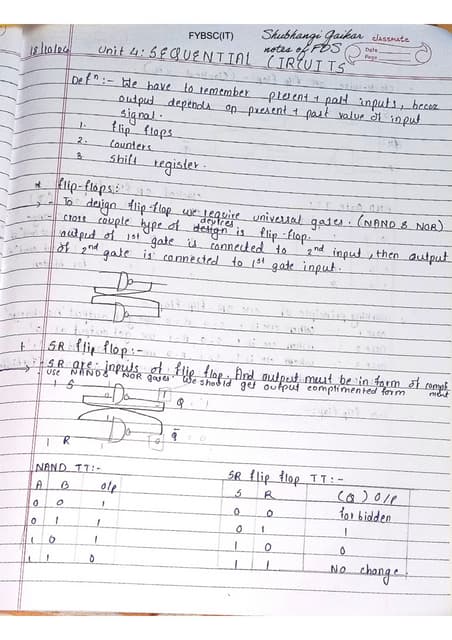 FYBSC(IT)
Shubhangi Gaikar
notes of FDS
classmate
Date
Page
18/10/24
Unit 4: SEQUENTIAL CIRCUITS
Defⁿ :- We have to remember present + past inputs, becoz
output depends on present + past value of input
signal.
1. flip flops
2. Counters
3. Shift register.
* flip-flops :-
→ To design flip-flop we require universal gates. (NAND & NOR)
cross couple type of devices is flip-flop.
output of 1st gate is connected to 2nd input, then output
of 2nd gate is connected to 1st gate input.
1. SR flip flop :-
→ SR are inputs of flip flop. And output must be in form of compliment
use NAND & NOR gates. We should get output complimented form
1 S
Q
1 R
Q̅
NAND TT :-
A B o/p
0 0 1
0 1 1
1 0 1
1 1 0
SR flip flop TT :-
S R (Q) O/P
0 0 forbidden
0 1 1
1 0 0
1 1 No change.